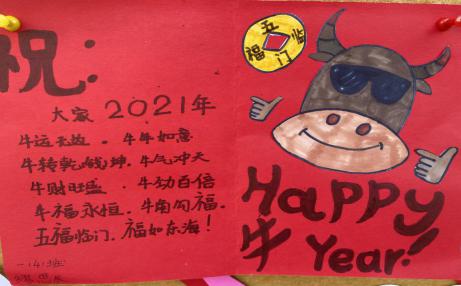 祝：
大家 2021年
牛运无边。牛年如意
牛转乾坤. 牛气冲天
牛财旺盛. 牛劲百倍
牛福永恒. 牛角勾福.
五福临门. 福如东海！
一(4)班
五福临门
Happy
牛 Year!